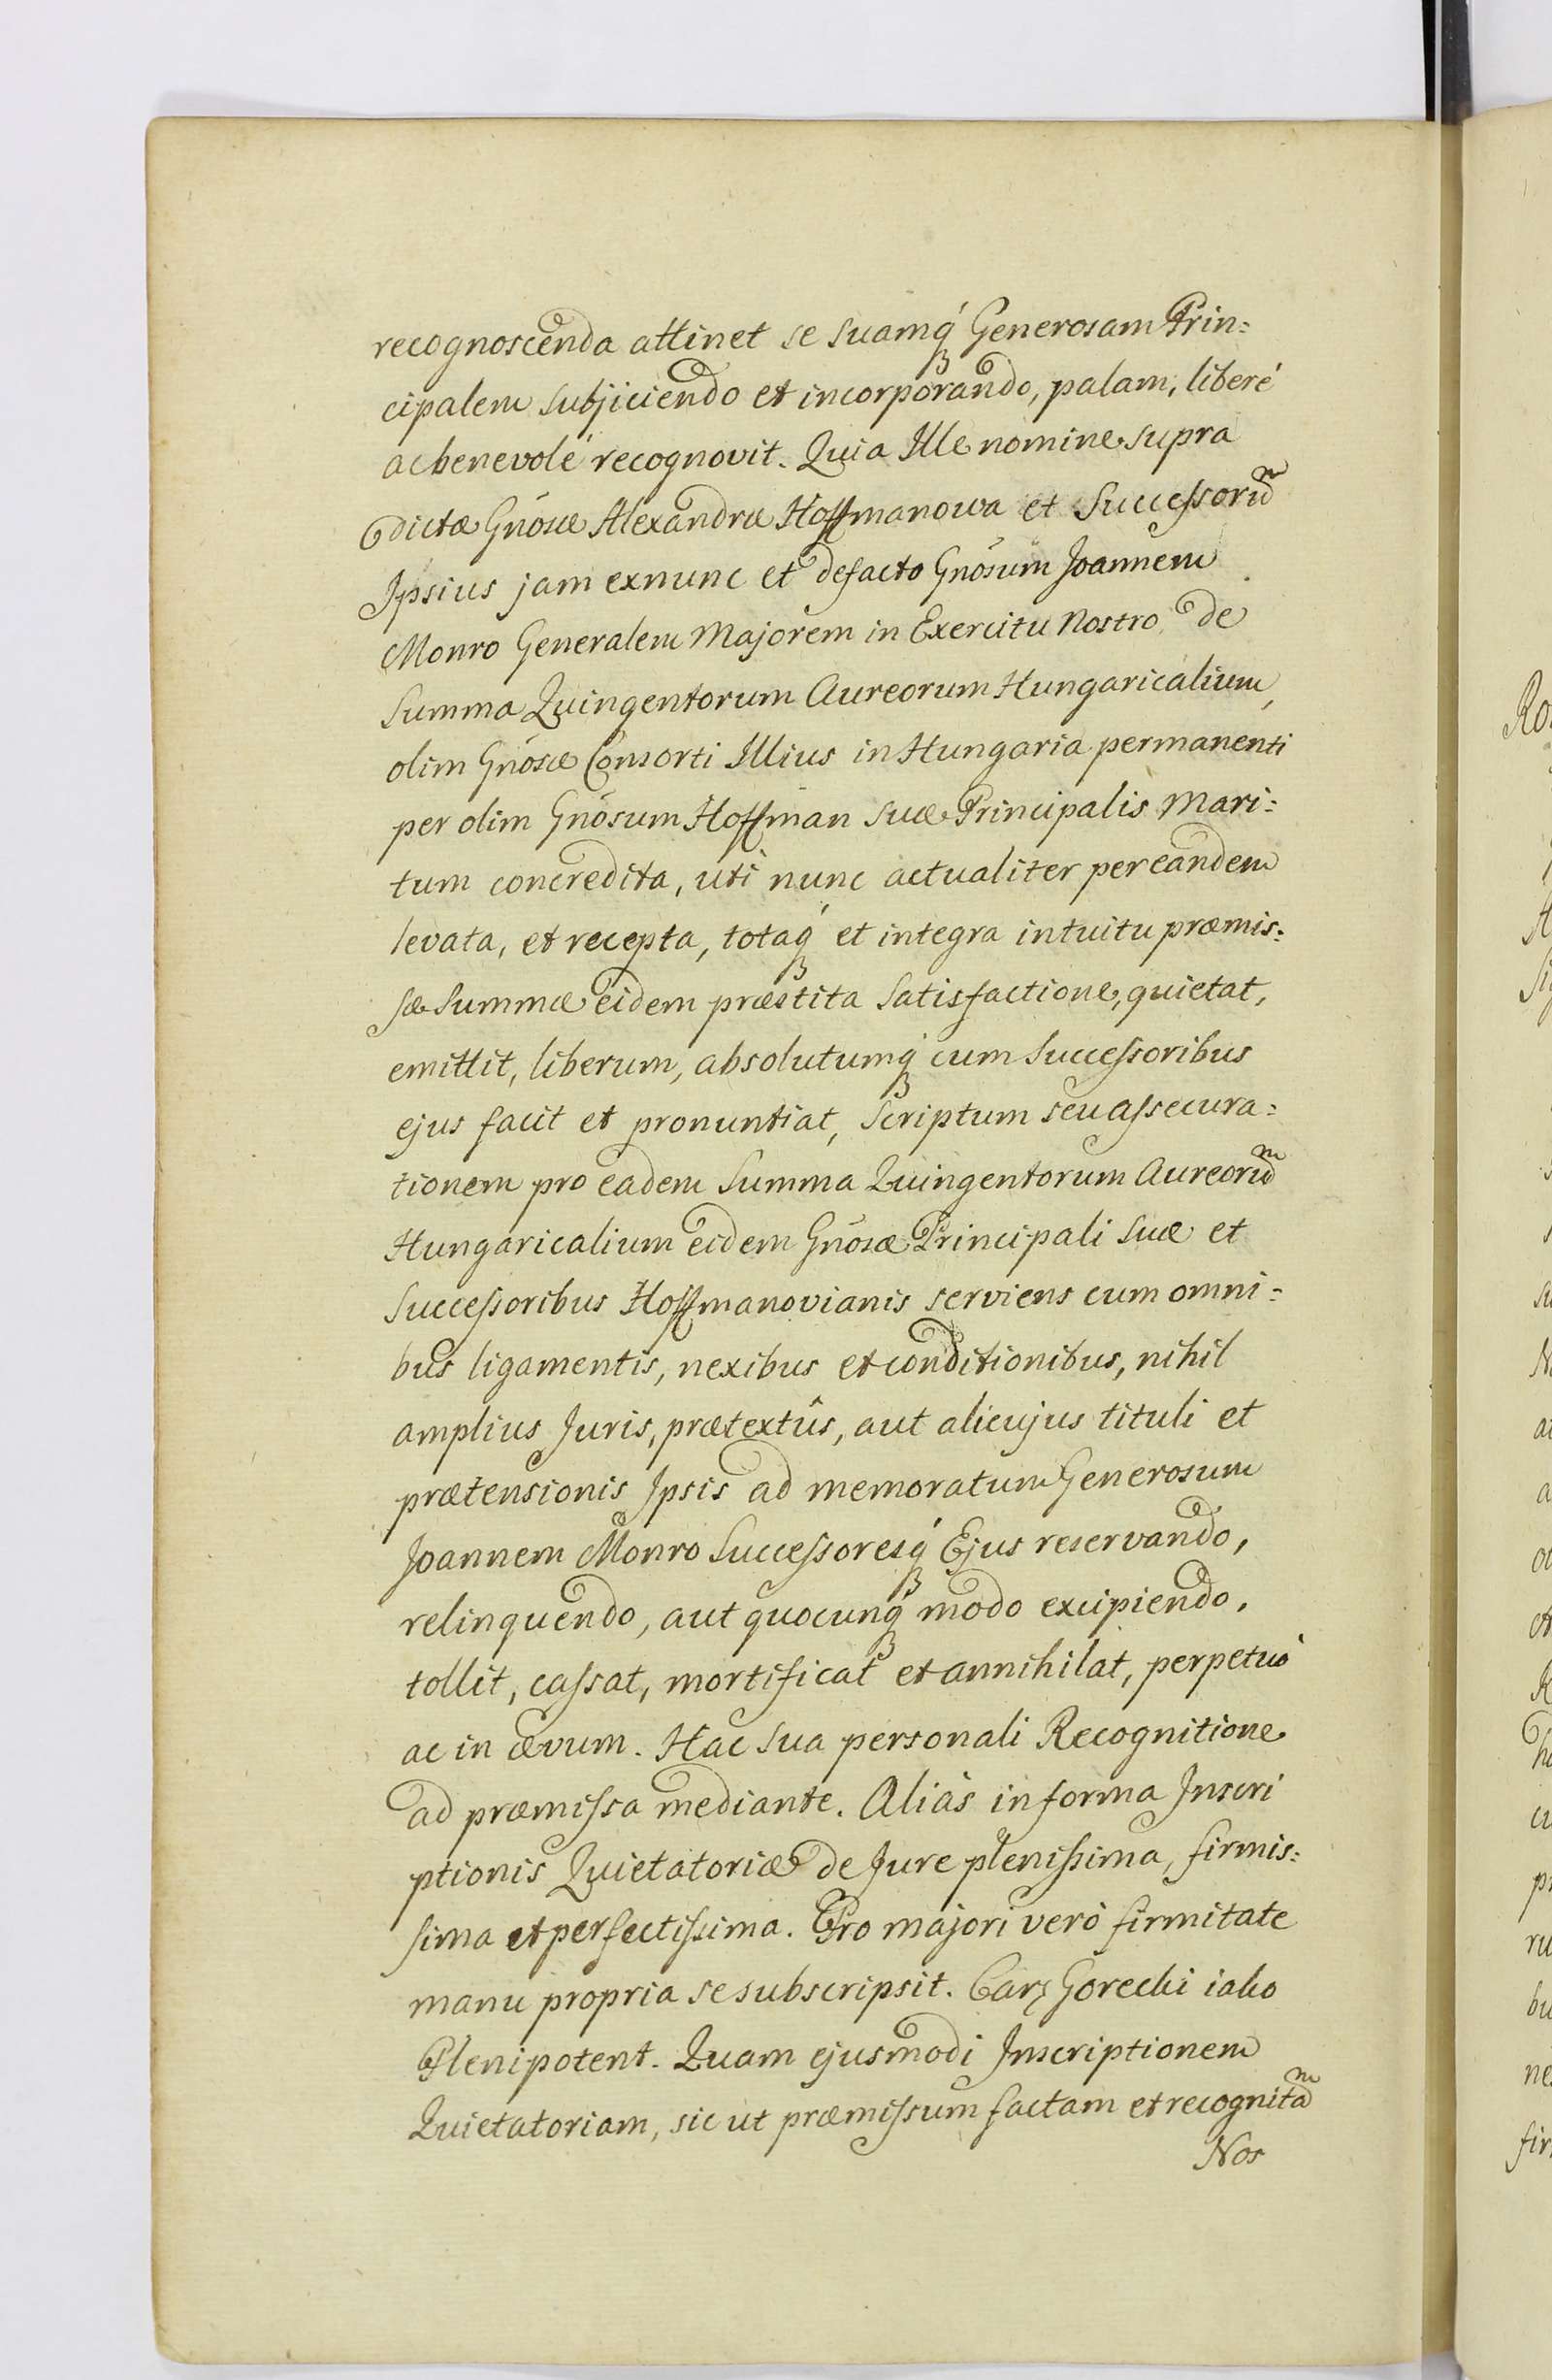 recognoscenda attinet se suamq́ꝫ Generosam Prin=
cipalem subjiciendo et incorporando, palam, liberé
ac benevolé recognovit. Quia Ille nomine supra
dictæ Gnosæ Alexandræ Hoffmanowa et Successorum̃
Ipsius jam exnunc et defacto Gnosum Joannem
Monro Generalem Majorem in Exercitu Nostro de
Summa Quingentorum Aureorum Hungaricalium,
olim Gnosæ Consorti Illius in Hungaria permanenti
per olim Gnosum Hoffman suæ Principalis Mari=
tum concredita, uti nunc actualiter per eandem
levata, et recepta, totaq́ꝫ et integra intuitu præmis=
sæ Summæ eidem præstita satisfactione, quietat,
emittit, liberum, absolutumq́ꝫ cum Successoribus
ejus facit et pronuntiat, Scriptum seu assecura=
tionem pro eadem Summa Quingentorum Aureorum
Hungaricalium eidem Gnosæ Principali suæ et
Successoribus Hoffmanovianis serviens cum omni=
bus ligamentis, nexibus et conditionibus, nihil
amplius Juris, prætextûs, aut alicujus tituli et
prætensionis Ipsis ad memoratum Generosum
Joannem Monro Successoresq́ꝫ Ejus reservando,
relinquendo, aut quocunq́ꝫ modo excipiendo,
tollit, cassat, mortificat et annihilat, perpetuò
ac in ævum. Hac sua personali Recognitione
ad præmissa mediante. Aliàs in forma Inscri
ptionis Quietatoriæ de Jure plenissima, firmis=
sima et perfectissima. Pro majori verò firmitate
manu propria se subscripsit. Gorecki iako
Plenipotent. Quam ejusmodi Inscriptionem
Quietatoriam, sic ut præmissum factam et recognitam
Nos